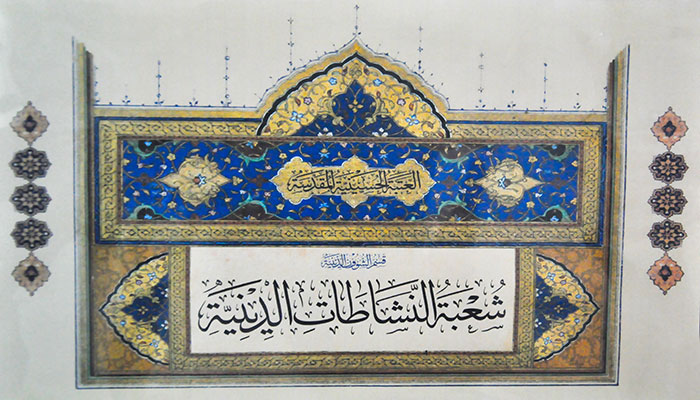 العتبة الحسينية المقدسة
قسم الشؤون الدينية
شُعْبَةُ النَّشَاطَاتِ الدِّينِيَّةِ